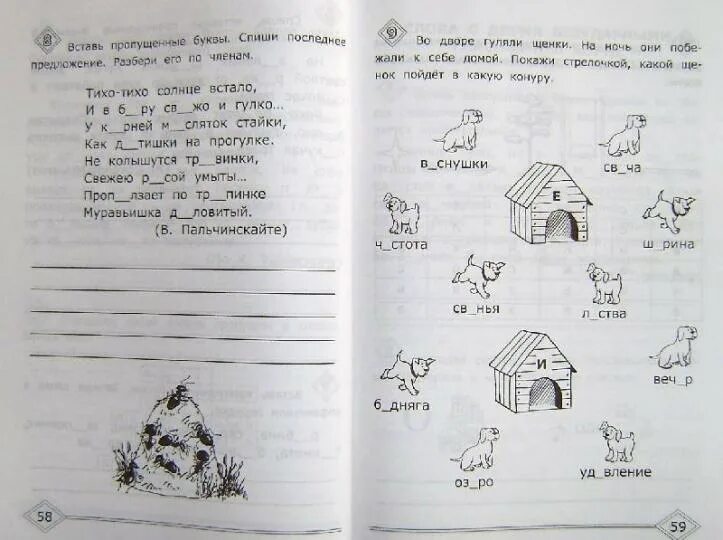 8 Вставь пропущенные буквы. Спиши последнее
предложение. Разбери его по членам.
Тихо-тихо солнце встало,
И в б__ру св__жо и гулко...
У к__рней м__сляток стайки,
Как д__тишки на прогулке.
Не колышутся тр__винки,
Свежею р__сой умыты...
Проп__лзает по тр__пинке
Муравьишка д__ловитый.
(В. Пальчинскайте)
58
9 Во дворе гуляли щенки. На ночь они побе-
жали к себе домой. Покажи стрелочкой, какой ще-
нок пойдёт в какую конуру.
в_снушки
св_ча
Е
ч_стота
ш_рина
св_нья
л_ства
И
веч_р
б_дняга
оз_ро
уд_вление
59